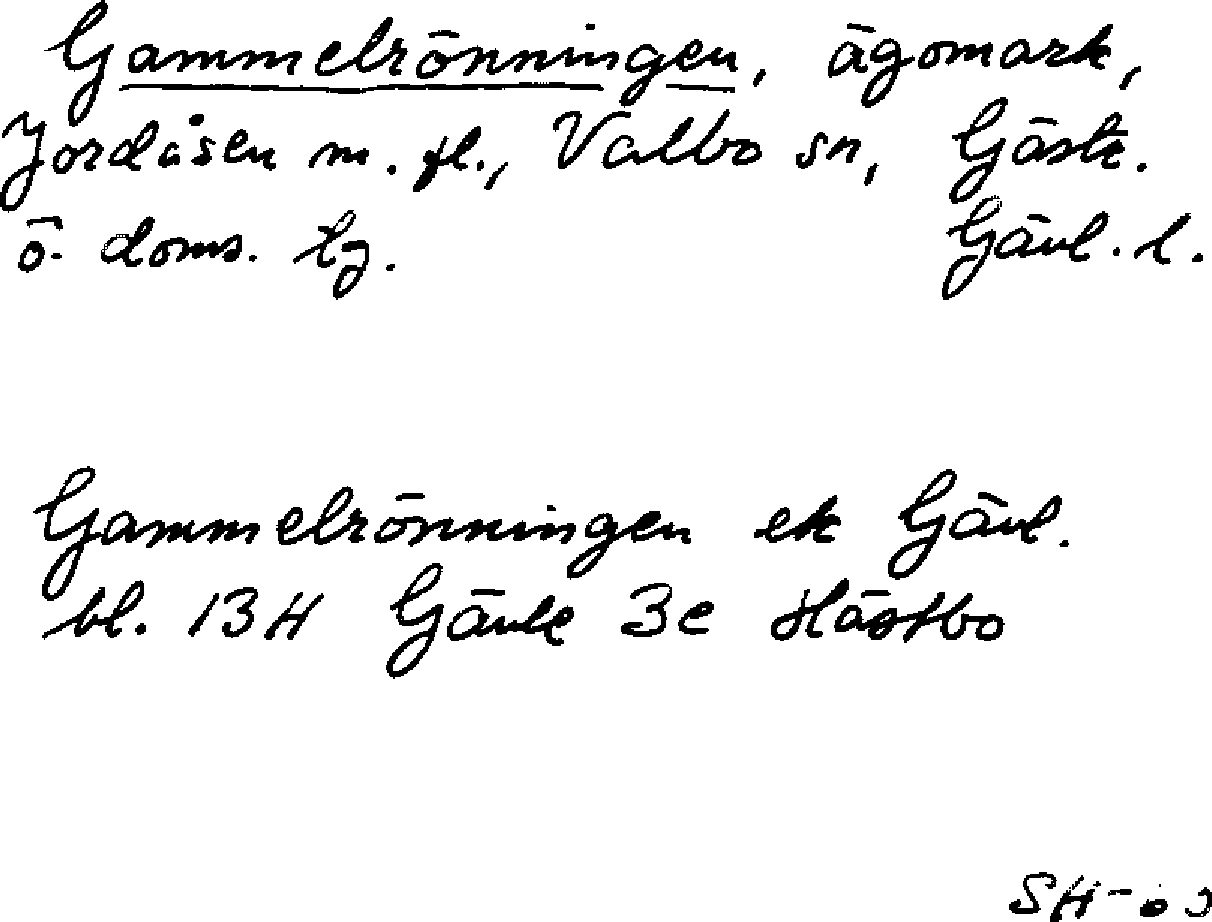 Gammelrönningen, ägomark,
Jordåsen m. fl., Valbo sn, Gästr.
ö. doms. tg. Gävl. l.
Gammelrönningen ek Gävl.
bl. 13H Gävle 3c Hästbo